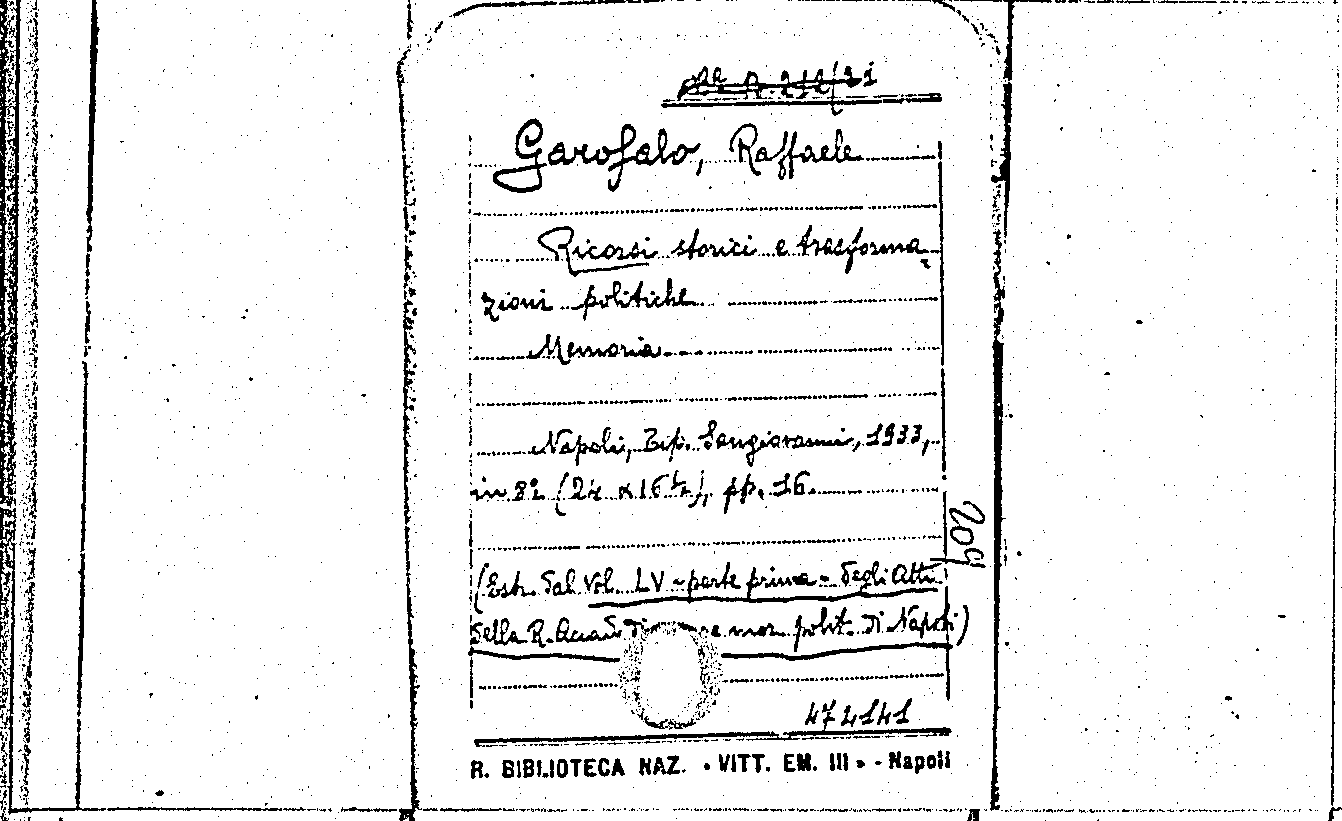 212/21
Garofalo, Raffaele
Ricorsi storici e trasforma-
zioni politiche
Memoria
Napoli, Tip. Sangiovanni, 1933,
in 8º (24 x 16 ½), pp. 16.
209
(Estr. dal Vol. LV - parte prima - degli Atti
della R. Accad. di mor. polit. di Napoli)
472141
R. BIBLIOTECA NAZ. « VITT. EM. III » - Napoli